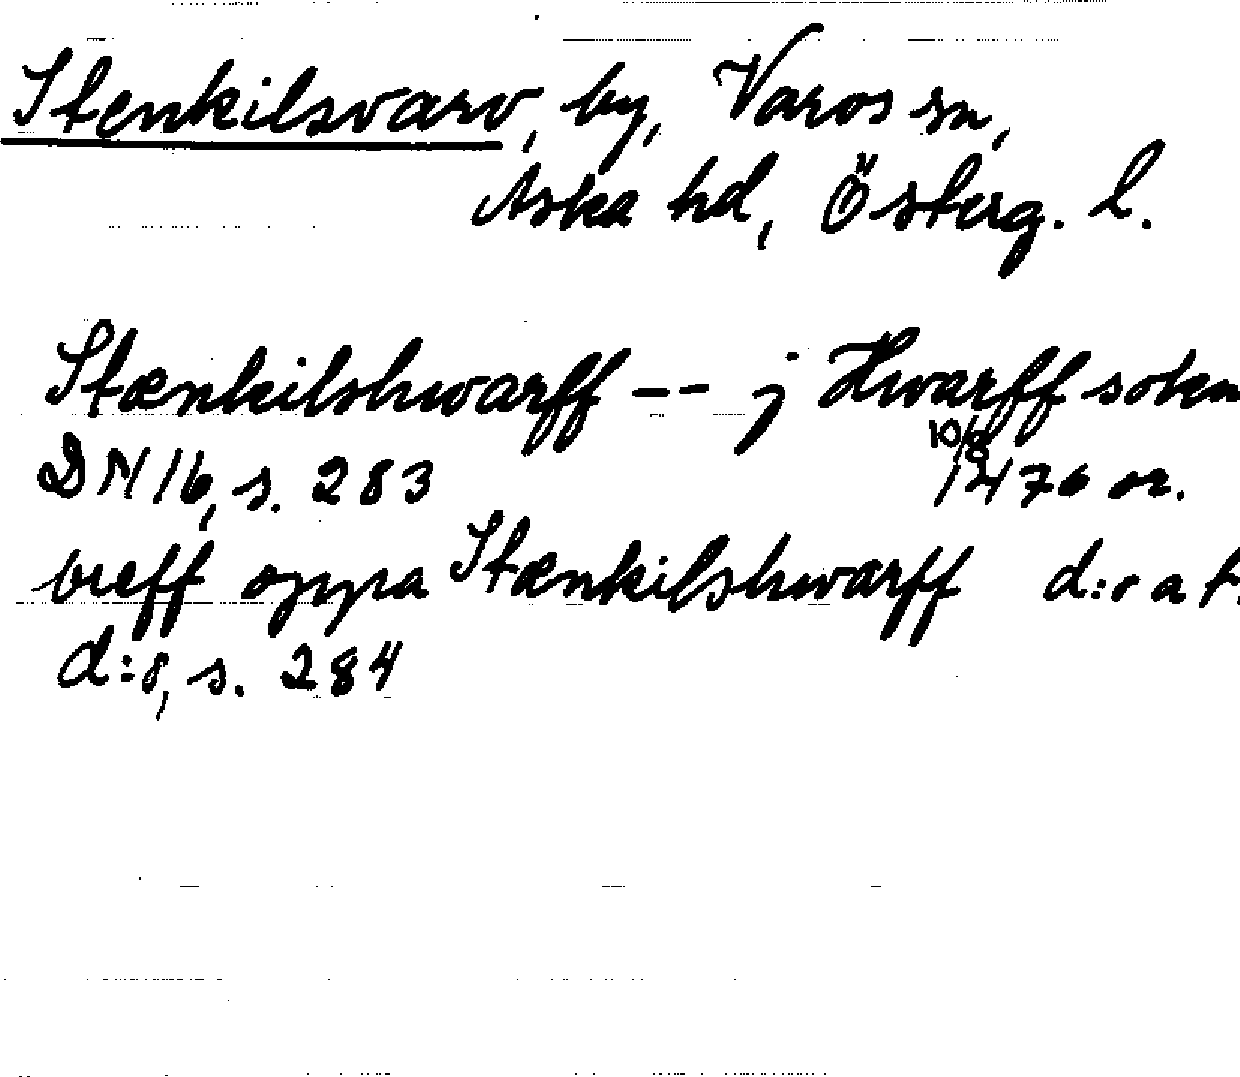 Stenkilsvarv, by, Varvs sn,
Aska hd, Österg. l.
Stænkilshwarff -- j Hwarff soken
DN 16, s. 283 10/8 1476 or.
breff oppa Stænkilshwarff d:o at.
d:o, s. 284